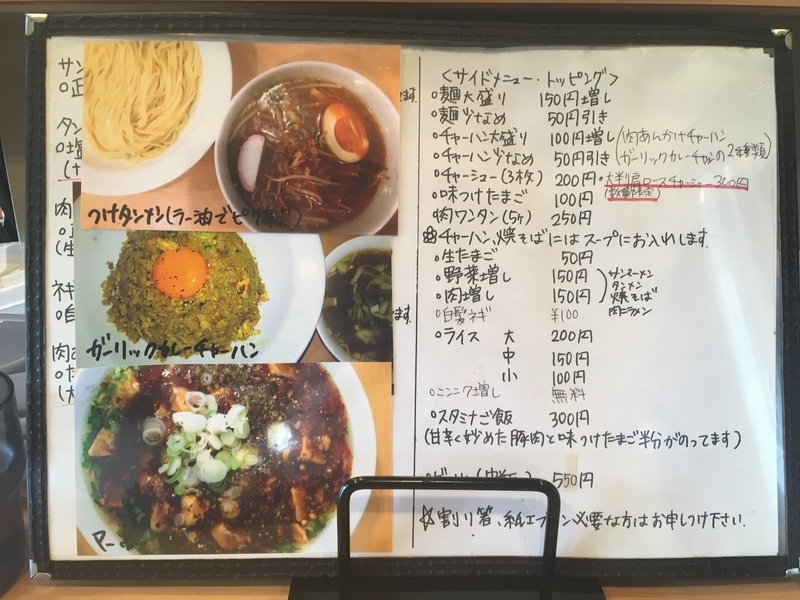 サン
タン
肉
ネギ
肉
ます。
ます。
つけタンメン(ラー油でピリ
ガーリックカレーチャーハン
マー
<サイドメニュー・トッピング>
○麺大盛り 150円増し
○麺少なめ 50円引き
○チャーハン大盛り 100円増し
(肉あんかけチャーハン
○チャーハン少なめ 50円引き
ガーリックカレーチャーハンの2種類)
○チャーシュー(3枚) 200円
・大判肩ロースチャーシュー300円
(数量限定)
○味つけたまご 100円
○肉ワンタン(5ヶ) 250円
チャーハン、焼そばにはスープにお入れします。
○生たまご 50円
○野菜増し 150円
○肉増し 150円
サンマーメン
タンメン
焼そば
肉ラーメン
○白髪ネギ ¥100
○ライス 大 200円
中 150円
小 100円
○ニンニク増し 無料
○スタミナご飯 300円
(甘辛く炒めた豚肉と味つけたまご半分がのってます)
550円
☆割り箸、紙エプロン必要な方はお申しつけ下さい。